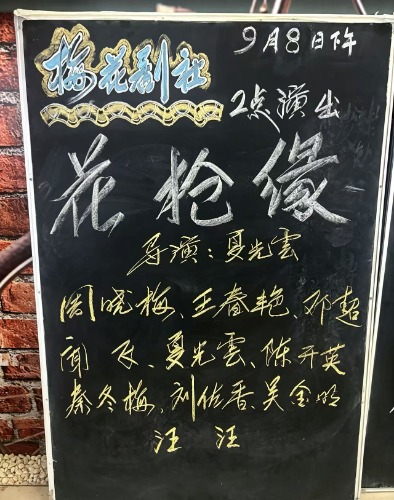 梅花剧社
9月8日下午
2点演出
花枪缘
导演：夏光雲
周晓梅、王春艳、邓超
闻飞、夏光雲、陈开英
秦冬梅、刘佐香、吴金明
汪汪